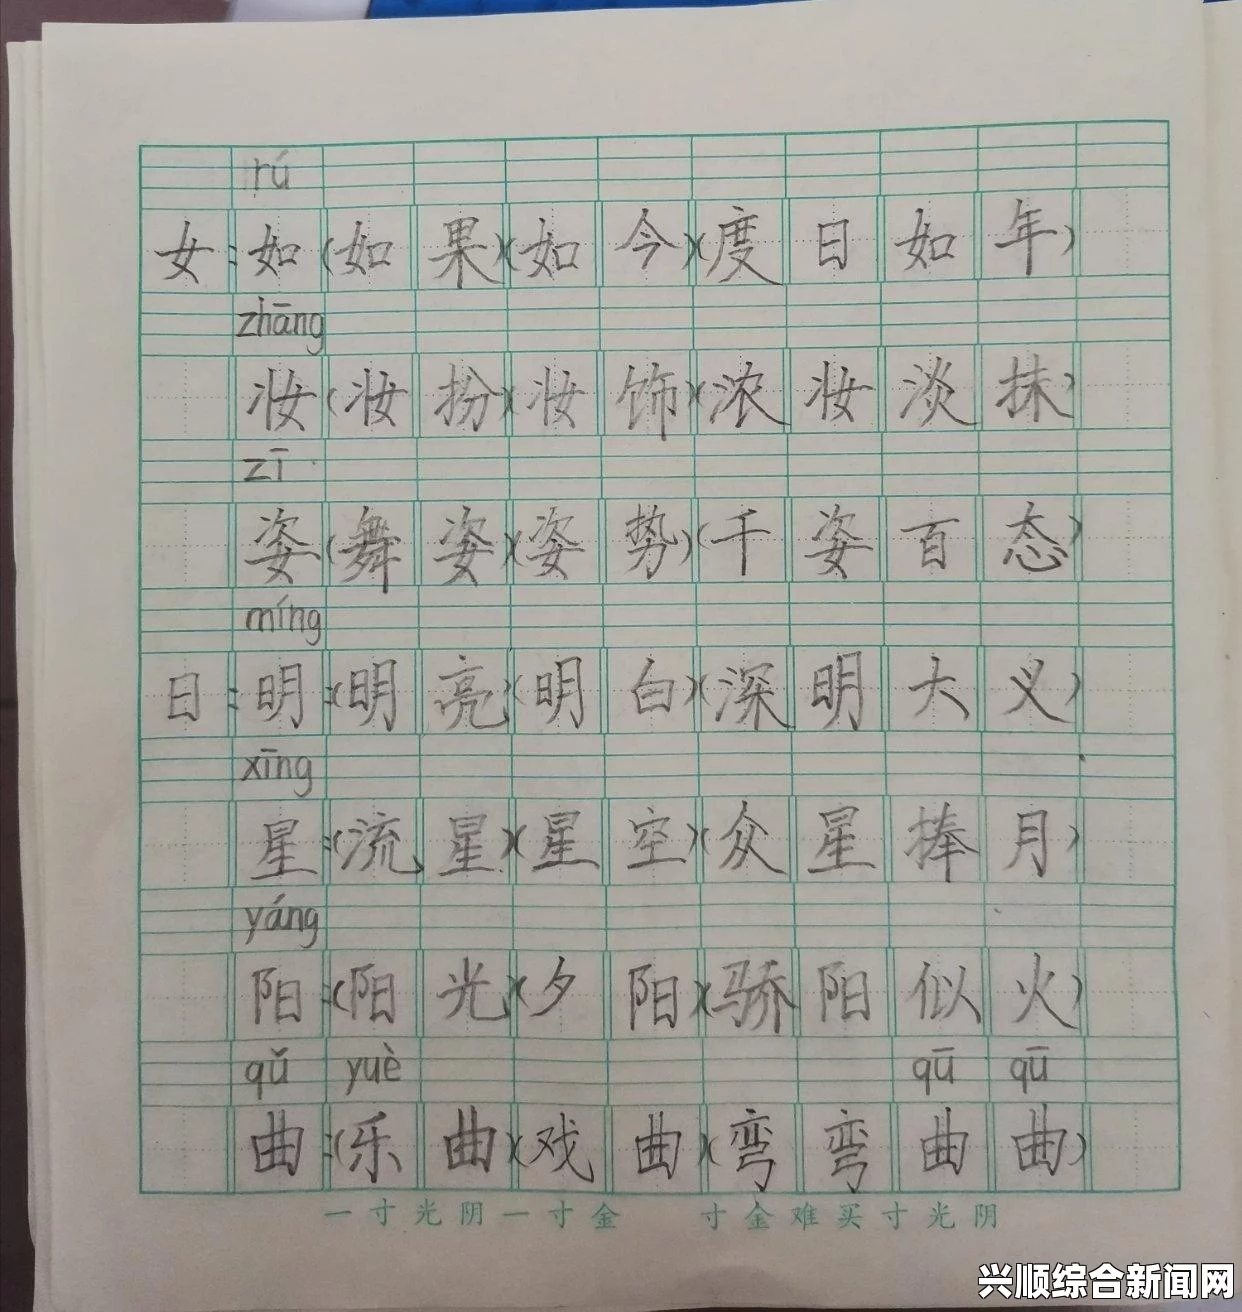 rú
女:如(如果)(如今)(度日如年)
zhāng
妆(妆扮)(妆饰)(浓妆淡抹)
zī
姿(舞姿)(姿势)(千姿百态)
míng
日:明:(明亮)(明白)(深明大义)
xīng
星:(流星)(星空)(众星捧月)
yáng
阳:(阳光)(夕阳)(骄阳似火)
qǔ yuè qū qū
曲:(乐曲)(戏曲)(弯弯曲曲)
一寸光阴一寸金 寸金难买寸光阴
兴顺综合新闻网